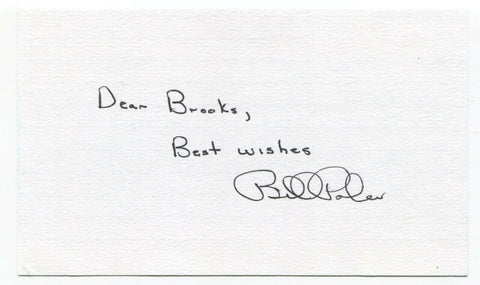 Dear Brooks,
Best wishes
Bill